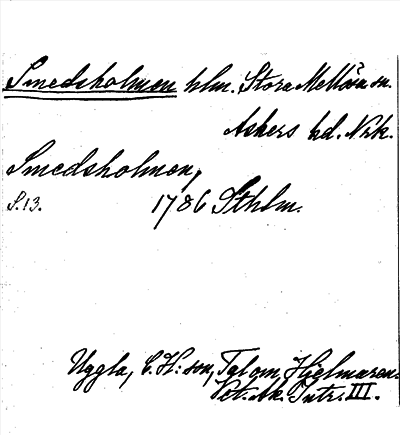 Smedsholmen hlm. Stora Mellösa sn.
Askers hd. Nrk.
Smedsholmen,
S. 13. 1786 Sthlm.
Uggla, C. H:son, Tal om Hjelmaren.
Vet. Ak. Intr. III.